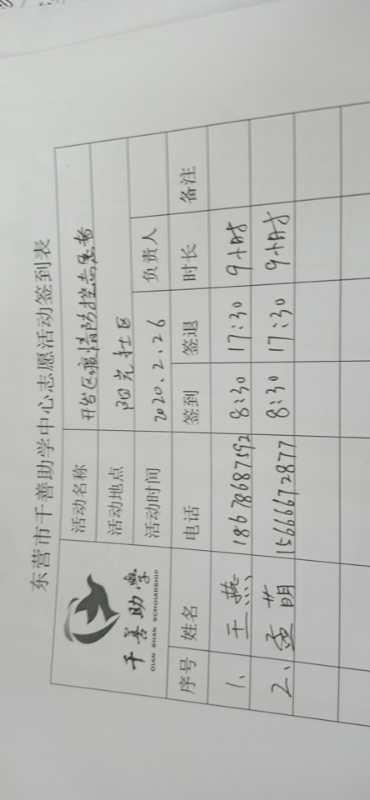 东营市千善助学中心志愿活动签到表
千善助学
QIAN SHAN SCHOLARSHIP
活动名称 开发区疫情防控志愿者
活动地点 阳光社区
活动时间 2020.2.26 负责人
序号 姓名 电话 签到 签退 时长 备注
1、 王燕 18678687592 8:30 17:30 9小时
2、 李萌 15666672877 8:30 17:30 9小时